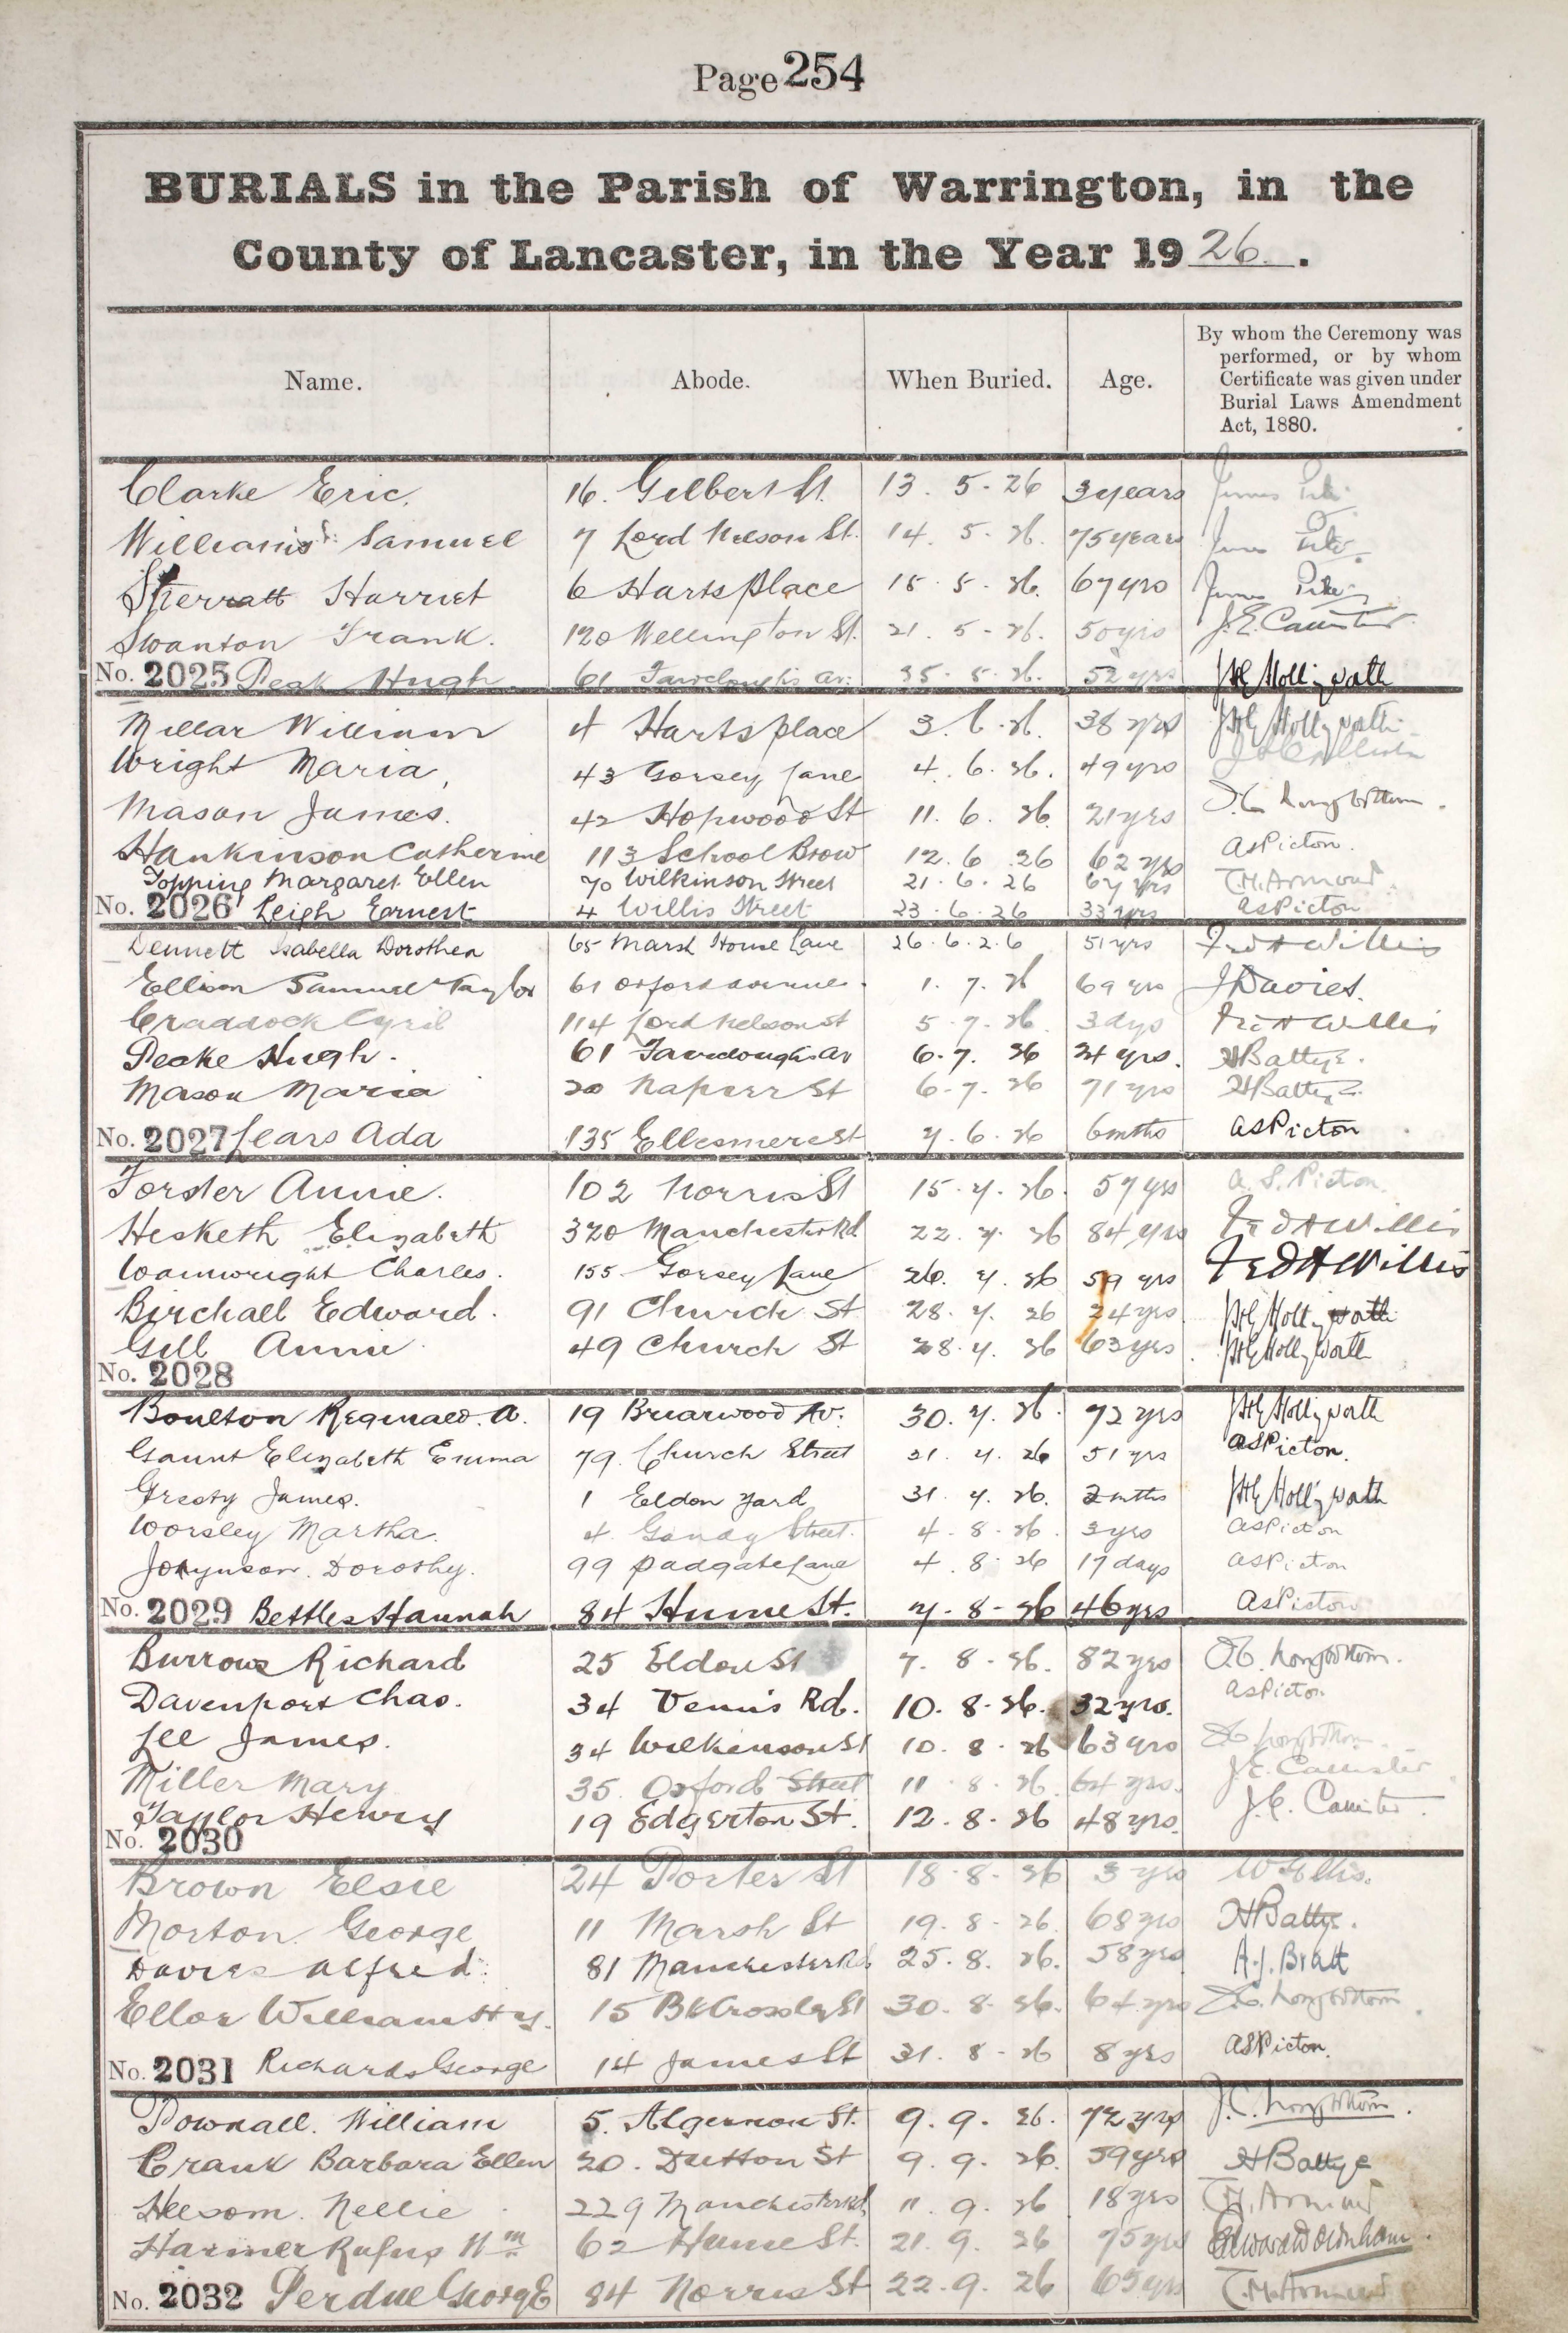 Page 254
BURIALS in the Parish of Warrington, in the
County of Lancaster, in the Year 19 26.
Name. Abode. When Buried. Age. By whom the Ceremony was performed, or by whom Certificate was given under Burial Laws Amendment Act, 1880.
Clarke Eric. 16. Gilbert St. 13. 5-26 3 years James
Williams Samuel 7 Lord Nelson St. 14. 5-26. 75 years James
Sherratt Harriet 6 Harts place 15.5-26. 67 yrs James
Swanton Frank. 120 Wellington St. 21. 5-26. 50 yrs J.E. Canister
No. 2025 Peak Hugh 61 Fairclough's av: 25.5.26. 52 yrs Hollingworth
Millar William 4 Harts place 3.6.26. 38 yrs Hollingworth
Wright Maria, 43 Gorsey Lane 4.6.26. 49 yrs
Mason James. 42 Hopwood St 11.6.26. 21 yrs Longbottom.
Hankinson Catherine 113 School Brow 12.6.26 62 yrs AS Picton.
Topping Margaret Ellen 70 Wilkinson Street 21.6.26 67 yrs T.H. Armour.
No. 2026 Leigh Ernest 4 Willis Street 23.6.26 33 yrs AS Picton
Dennett Isabella Dorothea 65 Marsh House Lane 26.6.26 51 yrs Fred H Willis
Ellison Samuel Taylor 61 Orford avenue. 1.7.26 69 yrs J Davies.
Craddock Cyril 114 Lord Nelson St 5.7.26. 3 days Fred H Willis
Peake Hugh. 61 Fairclough's Av 6.7.26 24 yrs. H Battye.
Mason Maria 20 Napier St 6.7.26 71 yrs H Battye.
No. 2027 Lears Ada 135 Ellesmere St 7.6.26 6 mths AS Picton
Forster Annie. 102 Norris St 15.7.26. 57 yrs A.S. Picton.
Hesketh Elizabeth 320 Manchester Rd 22.7.26 84 yrs Fred H Willis
Wainwright Charles. 155 Gorsey Lane 26.7.26 59 yrs Fred H Willis
Birchall Edward. 91 Church St 28.7.26 24 yrs. Hollingworth
Gill Annie 49 Church St 28.7.26 63 yrs. Hollingworth
No. 2028
Boulton Reginald. A. 19 Briarwood Av. 30.7.26. 72 yrs Hollingworth
Gaunt Elizabeth Emma 79. Church Street 31.7.26 51 yrs AS Picton.
James. 1 Eldon Yard 31.7.26. 2 mths Hollingworth
Worsley Martha. 4. Gandy Street. 4-8-26. 3 yrs AS Picton
Dorothy. 99 Padgate Lane 4.8-26 17 days AS Picton
No. 2029 Bettles Hannah 84 Hume St. 7-8-26 46 yrs AS Picton
Burrows Richard 25 Eldon St 7.8-26. 82 yrs Longbottom.
Davenport Chas. 34 Rd. 10.8-26. 32 yrs. AS Picton
Lee James. 34 Wilkinson St 10.8-26 63 yrs Longbottom.
Miller Mary 35. Oxford Street 11.8.26. 64 yrs. J.E. Canister
Taylor Henry 19 Edgerton St. 12.8.26 48 yrs. J.E. Canister
No. 2030
Brown Elsie 24 Porter St 18-8-26 3 yrs W Ellis.
Morton. George 11 Marsh St 19.8-26. 68 yrs H Battye.
Davies Alfred. 81 Manchester Rd 25.8.26. 58 yrs A.J. Bratt
Ellor William Hy. 15 Bk Crossley St 30.8-26. 64 yrs Longbottom
No. 2031 Richards George 14 James St 31.8-26 8 yrs AS Picton.
Pownall. William 5. Algernon St. 9.9.26. 72 yrs J.C. Longbottom.
Crank Barbara Ellen 20. Dutton St 9.9.26. 59 yrs H Battye
Heesom. Nellie 229 Manchester Rd. 11.9.26 18 yrs T.H. Armour
Harmer Rufus Wm 62 Hume St. 21.9.26 75 yrs Edward Downham.
No. 2032 Perdue George 84 Norris St 22.9.26 65 yrs T.H. Armour